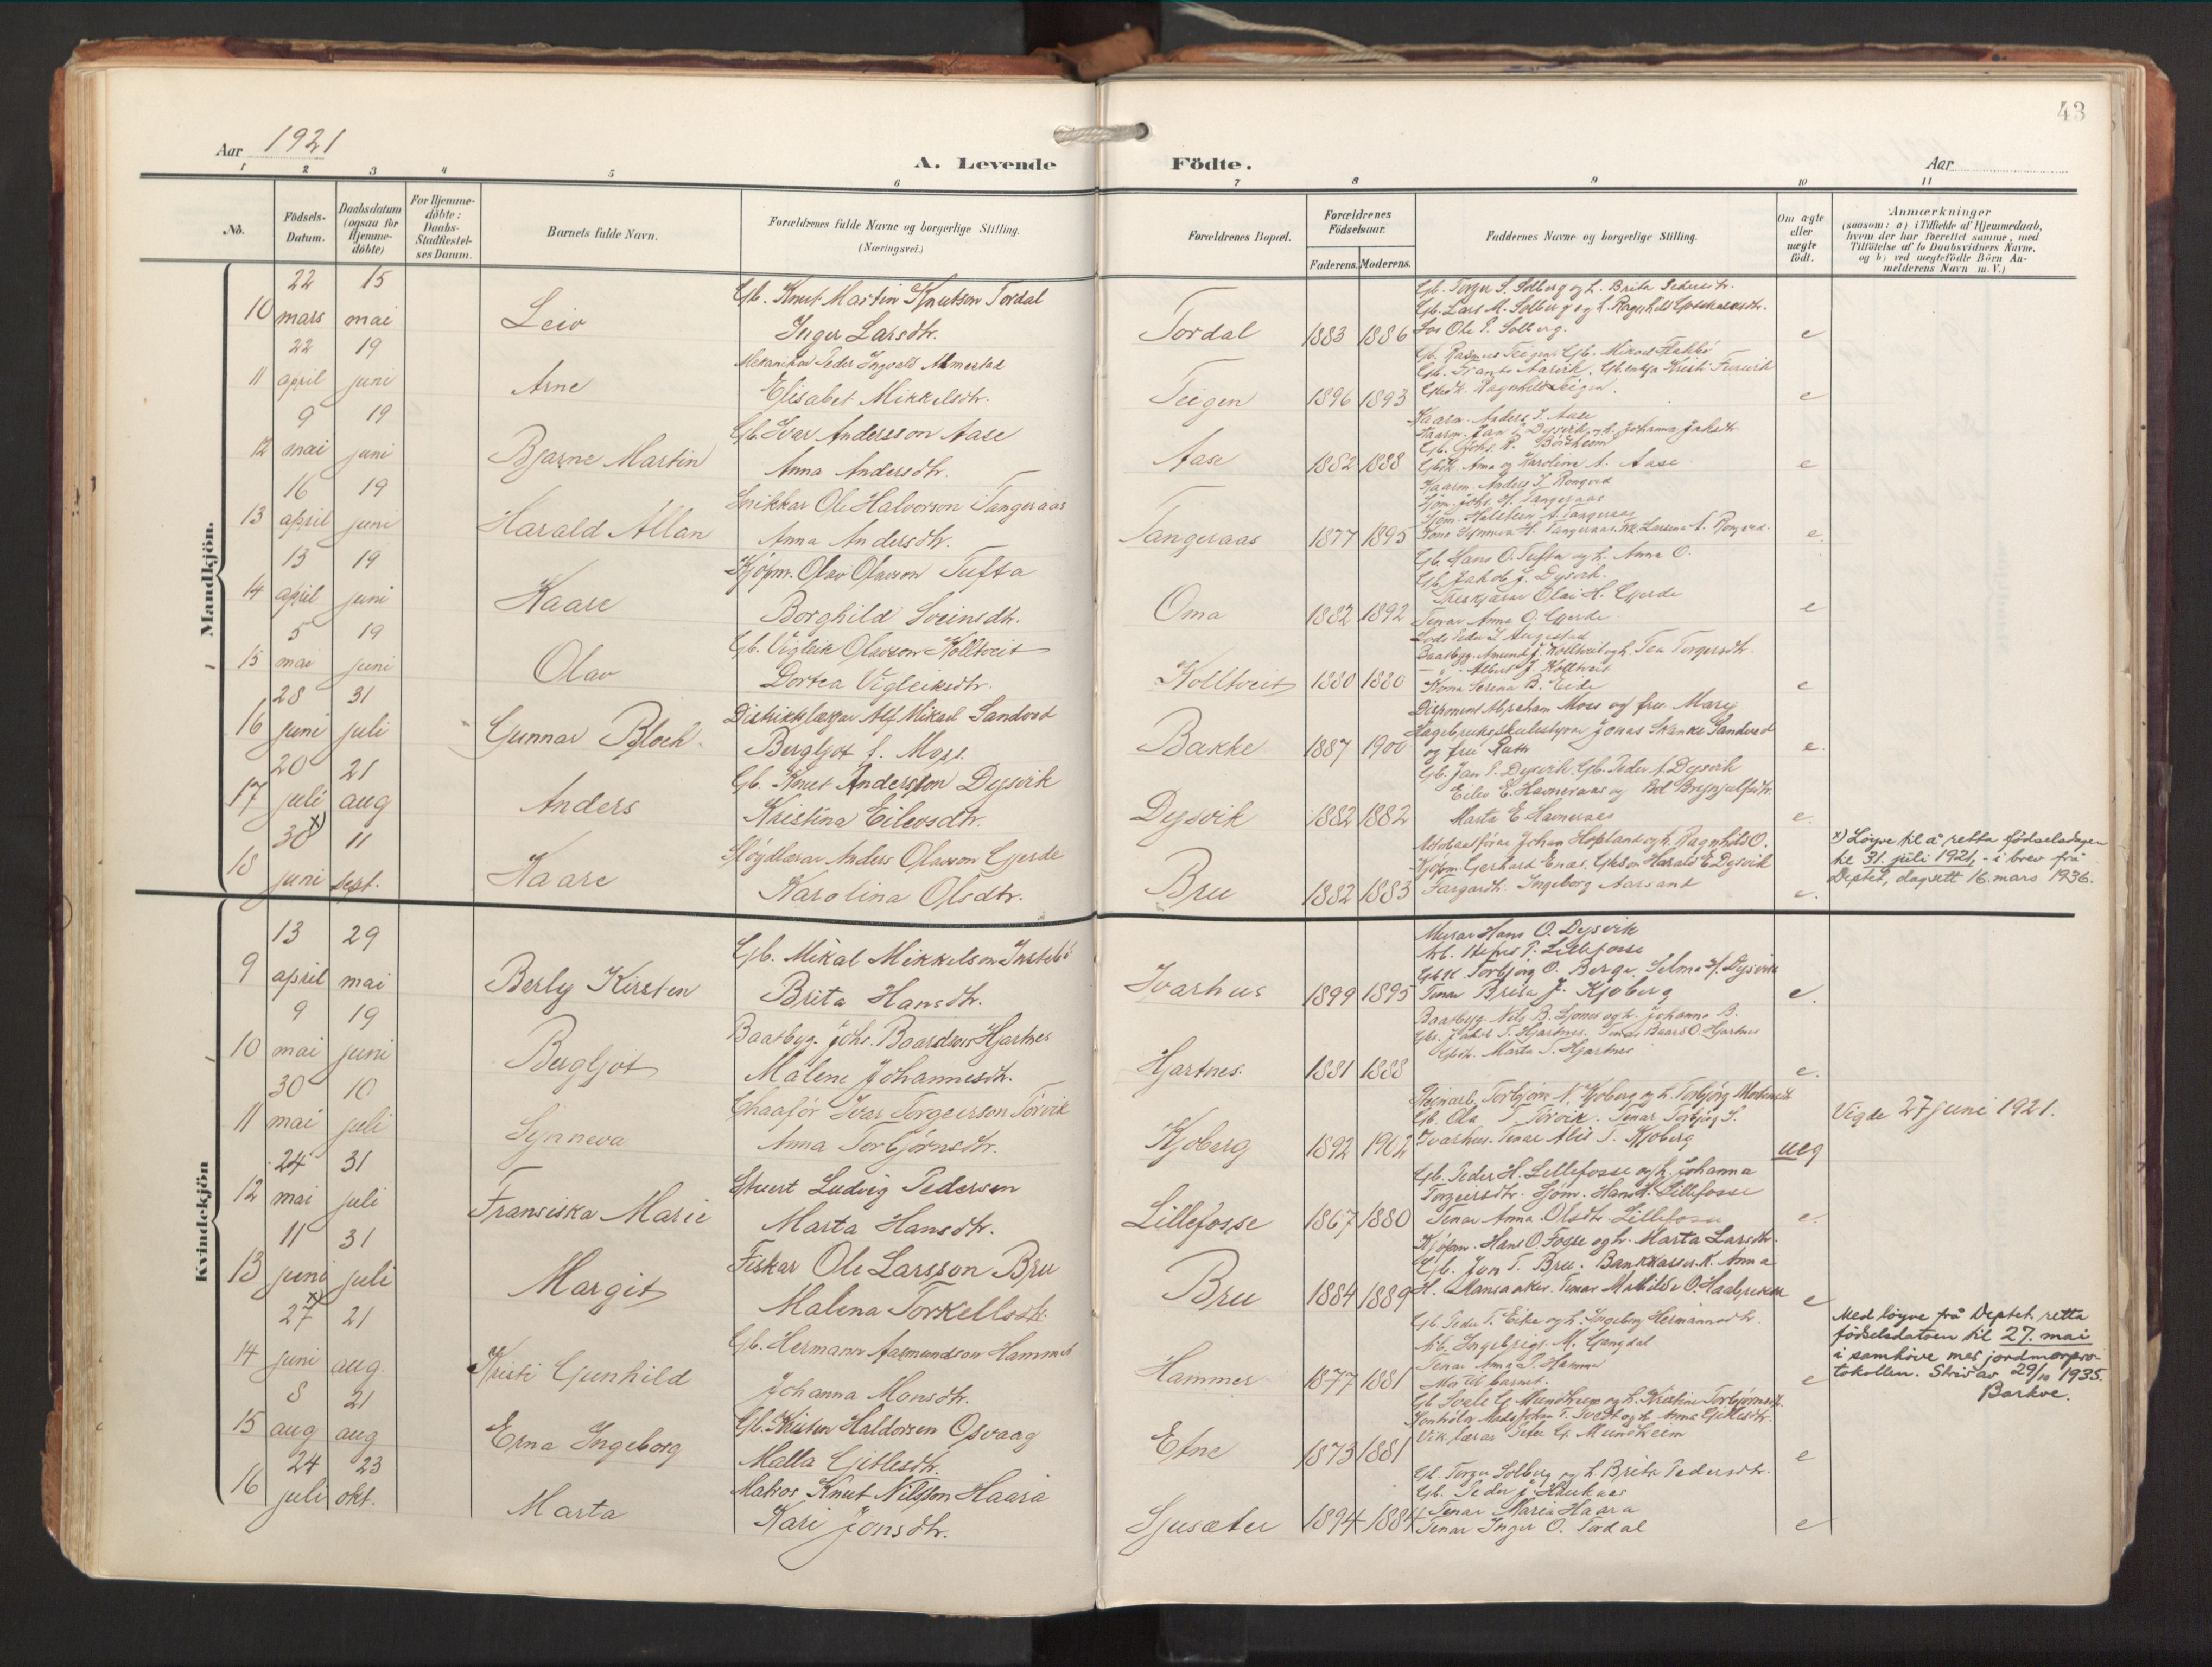 43
Aar 1921
A. Levende Födte.
Aar
1 2 3 4 5 6 7 8 9 10 11
No.
Födsels-Datum.
Daabsdatum (ogsaa for Hjemme-döbte)
For Hjemme-döbte: Daabs-Stadfæstel-ses Datum.
Barnets fulde Navn.
Forældrenes fulde Navne og borgerlige Stilling. (Næringsvei.)
Forældrenes Bopæl.
Forældrenes Födselsaar.
Faderens. Moderens.
Faddernes Navne og borgerlige Stilling.
Om ægte eller uægte födt.
Anmærkninger
(saasom: a) i Tilfælde af Hjemmedaab,
hvem der har forrettet samme, med
Tilföielse af to Daabsvidners Navne.
og b) ved uegtefödte Börn An-
melderens Navn m. V.)
Mandkjön.
10 22 mars 15 mai Leiv
Gb. Knut Martin Knutson Tordal
Inger Larsdtr.
Tordal 1883 1886
Gb. Torger S. Solberg og h. Brita Pedersdtr.
Gb. Lars M. Solberg og h. Ragnhild
Ole P. Solberg.
e
11 22 april 19 juni Arne
Mekanikar Peder Ingvald Almestad
Elisabet Mikkelsdtr.
Teigen 1896 1893
Gb. Rasmus Teigen, Gb. Mikael
Gb. Aarvik. Kristi
Ragnhild Teigen.
e
12 9 mai 19 juni Bjarne Martin
Gb. Ivar Andersson Aase
Anna Andersdtr.
Aase 1882 1888
Kaarm. Anders I. Aase
Kaarm. Jan Dysvik og h. Johanna Jakobdtr.
Gb. Johs. P.
Anna og Karolina A. Aase
e
13 16 april 19 juni Harald Allan
Snikkar Ole Halvorson Tangeraas
Anna Andersdtr.
Tangeraas 1877 1895
Kaarm. Anders J. Rongved
Sjøm. Johs. H. Tangeraas
Sjøm. Halstein A. Tangeraas
Kona Synneva H. Tangeraas. Larsina A. Rongved.
e.
14 13 april 19 juni Kaare
Kjøpm. Olav Olavson Tufta
Borghild Sveinsdtr.
Oma 1882 1892
Gb. Hans O. Tufta og h. Anna O.
Gb. Jakob J. Dysvik.
Treskjærar Olai H. Gjerde
Tenar Anna O. Gjerde.
e
15 5 mai 19 juni Olav
Gb. Vigleik Olavson Kolltveit
Dortea Vigleiksdtr.
Kolltveit 1880 1880
Peder Augestad
Baatbyg. Amund J. Kolltveit og h. Tea Torgersdtr.
Albert J. Kolltveit
Kona Serena B. Eide
e
16 28 juni 31 juli Gunnar Bloch
Distriktslæge Alf Mikael Sandved
Bergljot Moss.
Bakke 1887 1900
Disponent Abraham Moss og fru Marey
Hagebruksskulestyrer Jonas Skanke Sandved
og fru Ruth
e.
17 20 juli 21 aug Anders
Gb. Knut Andersson Dysvik
Kristina Eilevsdtr.
Dysvik 1882 1882
Gb. Jan P. Dysvik, Gb. Peder A. Dysvik
Eilev E. Havneraas og Bol Brynjulfsdtr.
Marta E. Havneraas
e.
18 30 x) juni 11 sept. Kaare
Sløydlærar Anders Olavson Gjerde
Karolina Olsdtr.
Bru 1882 1883
Johan Hopland og h. Ragnhild O.
Kjøpm. Gerhard Enæs. Harald E. Dysvik
Ingeborg Aarsand
e.
x) Løyve til å retta fødselsdagen
til 31. juli 1921, - i brev frå
Deptet, dagsett 16. mars 1936.
Kvindekjön
9 13 april 29 mai Berly Kirsten
Gb. Mikal Mikkelson Instebø
Brita Hansdtr.
Ivarhus 1899 1895
Murar Hans O. Dysvik
Arb. P. Lillefosse
Torbjørg O. Berge. Selma H. Dysvik
Tenar Brita J. Kjoberg
e.
10 9 mai 19 juni Bergljot
Baatbyg. Johs. Baardson Hjartnes
Malene Johannesdtr.
Hjartnes. 1881 1888
Baatbyg. Nils B. Ljones og h. Johanna B.
T. Hjartnes. Baard O. Hjartnes
Marta T. Hjartnes
e.
11 30 mai 10 juli Synneva
Chaafør Ivar Torgeirson Torvik
Anna Torbjørnsdtr.
Kjoberg 1892 1902
Torbjørn N. Kjoberg og h. Torbjørg
Gb. Ola T. Torvik. Tenar Torbjørg S.
Ivarhus. Tenar Alis T. Kjoberg
ueg
Vigde 27 juni 1921.
12 24 mai 31 juli Fransiska Marie
Stuert Ludvig Pedersen
Marta Hansdtr.
Lillefosse 1867 1880
Gb. Peder H. Lillefosse og h. Johanna
Torgeirsdtr. Sjøm. Hans H. Lillefosse
Tenar Anna Olsdtr. Lillefosse
e.
13 11 juni 31 juli Margit
Fiskar Ole Larsson Bru
Malena Torkellsdtr.
Bru 1884 1889
Kjøpm. Hans O. Fosse og h. Marta Larsdtr.
Gb. Jon T. Bru. Bankkasser. K. Anna
H. Mansaaker. Tenar Mathilde O.
e
14 27 x) juni 21 aug. Kristi Gunhild
Gb. Hermann Aamundson Hammer
Johanna Monsdtr.
Hammer 1877 1881
Gb. Peder T. Eike og h. Ingeborg Hermannsdtr.
Arb. Ingebrigt M. Gangdal
Tenar Anna P. Hammer
Mor til barnet.
e
Med løyve frå Deptet retta
fødselsdatoen til 27. mai
i samhøve med jordmorpro-
tokollen. Skrivav 29/10 1935.
Barkve.
15 8 aug 21 aug Erna Ingeborg
Gb. Kristen Haldorsen Osvaag
Malla Gitlesdtr.
Etne 1873 1881
Gb. G. Mundheim og h. Kristine Torbjørnsdtr.
Kontrolør Johan T. Tvedt og h. Anna Gitlesdtr.
Vik. lærar Peter G. Mundheim
e
16 24 juli 23 okt. Marta
Matros Knut Nilsson Haara
Kari Jonsdtr.
Sjusæter 1894 1884
Gb. Torger Solberg og h. Brita Pedersdtr.
Gb. Peder J. Haukaas
Tenar Maria Haara
Tenar Inger O. Tordal
e